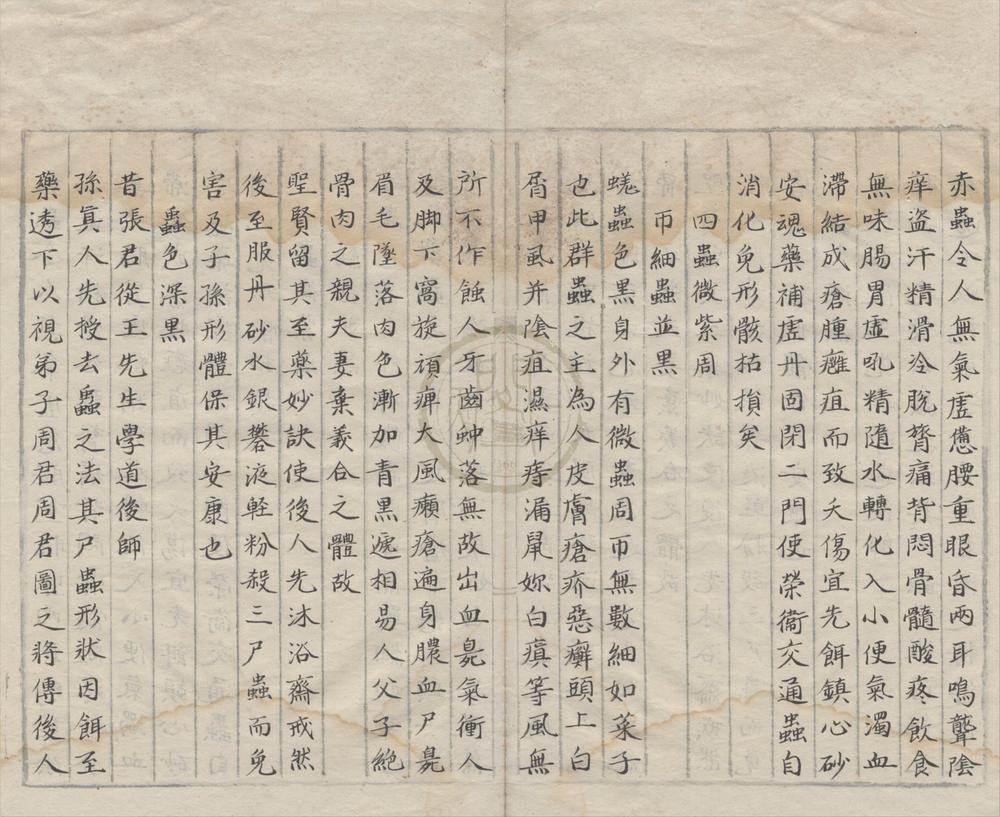 赤蟲令人無氣虛憊腰重眼昏兩耳鳴聾陰
痒盜汗精滑冷脫膂痛背悶骨髓酸疼飲食
無味腸胃虛吼精隨水轉化入小便氣濁血
滯結成瘡腫癰疽而致夭傷宜先餌鎮心砂
安魂藥補虛丹固閉二門使榮衞交通蟲自
消化免形骸枯損矣
四蟲微紫周
帀細蟲並黑
蟯蟲色黑身外有微蟲周帀無數細如菜子
也此群蟲之主為人皮膚瘡疥惡癬頭上白
屑甲風并陰疽濕痒痔漏鼠妳白癀等風無
所不作蝕人牙齒蚛落無故出血臰氣衝人
及脚下窩旋頑痺大風癩瘡遍身膿血尸臰
眉毛墜落肉色漸加青黑遞相易人父子絶
骨肉之親夫妻棄義合之體故
聖賢留其至藥妙訣使後人先沐浴齋戒然
後至服丹砂水銀礬液輕粉殺三尸蟲而免
害及子孫形體保其安康也
蟲色深黑
昔張君從王先生學道後師
孫真人先授去蟲之法其尸蟲形狀因餌至
藥透下以視弟子周君周君圖之將傳後人